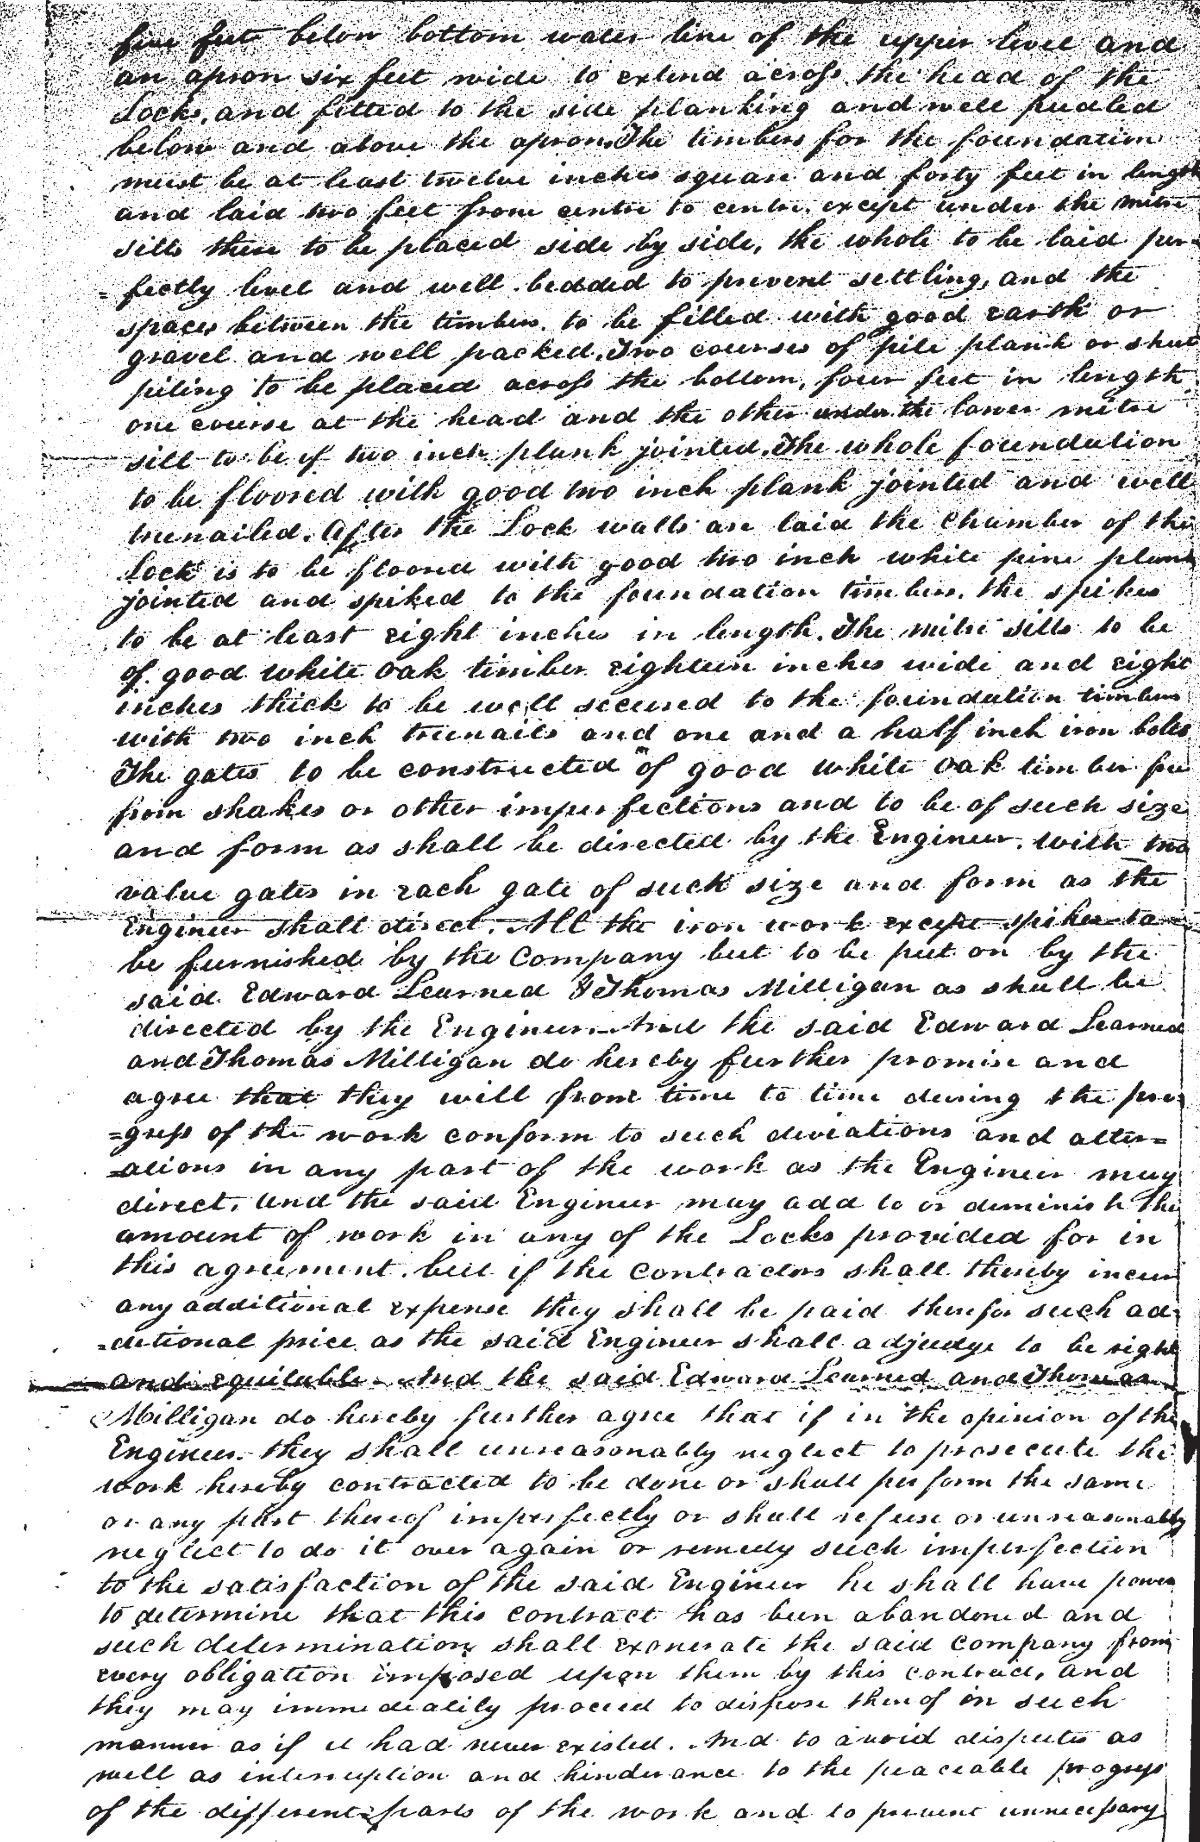 five feet below bottom water line of the upper level and
an apron six feet wide to extend across the head of the
Locks, and fitted to the side planking and well pudled
below and above the apron. The timbers for the foundation
must be at least twelve inches square and forty feet in length
and laid two feet from centre to centre, except under the mitre
sills there to be placed side by side, the whole to be laid per-
=fectly level and well bedded to prevent settling, and the
spaces between the timbers to be filled with good earth or
gravel and well packed. Two courses of pile plank or sheet
piling to be placed across the bottom, four feet in length
one course at the head and the other under the lower mitre
sill to be of two inch plank jointed. The whole foundation
to be floored with good two inch plank jointed and well
trenailed. After the Lock walls are laid the Chamber of the
Lock is to be floored with good two inch white pine plank
jointed and spiked to the foundation timbers, the spikes
to be at least eight inches in length. The mitre sills to be
of good white oak timber eighteen inches wide and eight
inches thick to be well secured to the foundation timbers
with two inch treenails and one and a half inch iron bolts
The gates to be constructed of good white oak timber free
from shakes or other imperfections and to be of such size
and form as shall be directed by the Engineer. with two
valve gates in each gate of such size and form as the
Engineer shall direct. All the iron work except spikes to
be furnished by the Company but to be put on by the
said Edward Learned & Thomas Milligan as shall be
directed by the Engineer. And the said Edward Learned
and Thomas Milligan do hereby further promise and
agree that they will from time to time during the pro-
=gress of the work conform to such deviations and alter=
=ations in any part of the work as the Engineer may
direct, and the said Engineer may add to or deminish the
amount of work in any of the Locks provided for in
this agreement. but if the contractors shall thereby incur
any additional expense they shall be paid therefor such ad-
=ditional price as the said Engineer shall adjudge to be right
and equitable. And the said Edward Learned and Thomas
Milligan do hereby further agree that if in the opinion of the
Engineer they shall unreasonably neglect to prosecute the
work hereby contracted to be done or shall perform the same
or any part thereof imperfectly or shall refuse or unreasonably
neglect to do it over again or remedy such imperfection
to the satisfaction of the said Engineer he shall have power
to determine that this contract has been abandoned and
such determination shall exonerate the said company from
every obligation imposed upon them by this contract, and
they may immediately proceed to dispose thereof in such
manner as if it had never existed. And to avoid disputes as
well as interruption and hinderance to the peaceable progress
of the different parts of the work and to prevent unnecessary